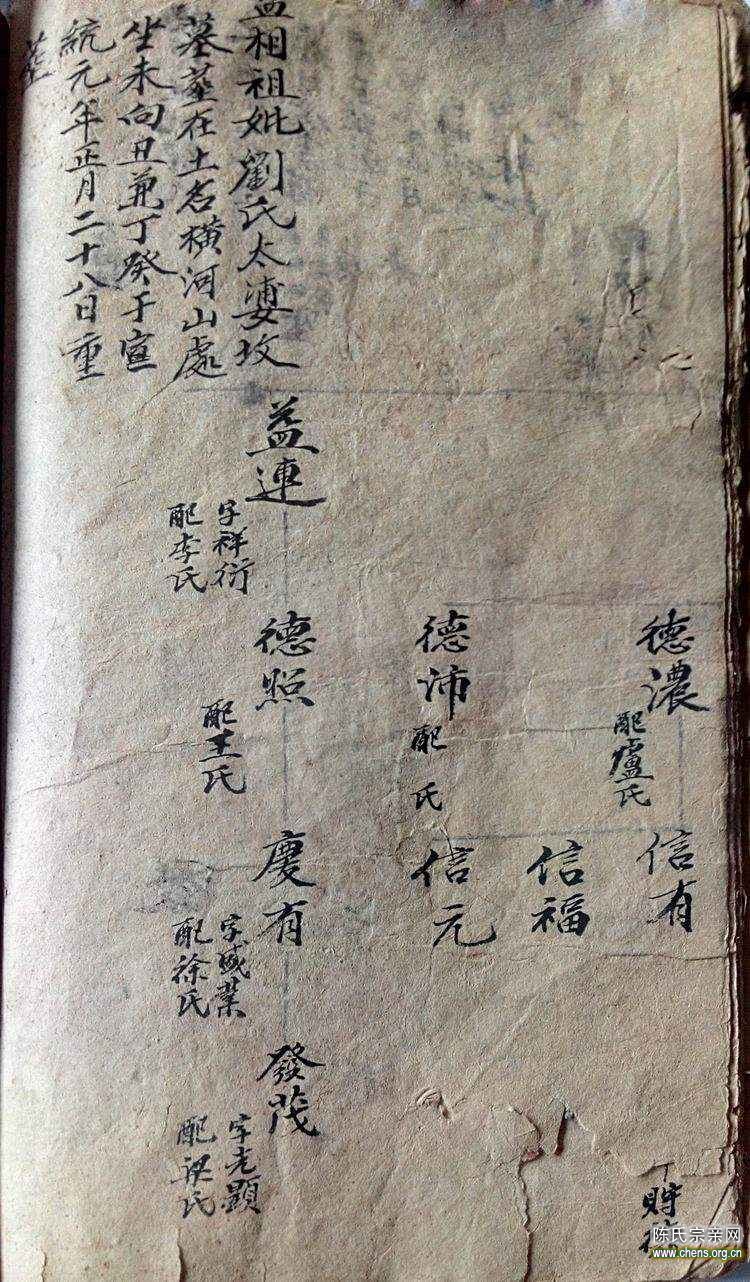 益相祖妣劉氏太婆坟
墓塟在土名橫河山處
坐未向丑兼丁癸于宣
統元年正月二十八日重
塟
益連
字祥衍
配李氏
德濃
配盧氏
德沛
配 氏
德照
配王氏
信有
信福
信元
慶有
字 業
配徐氏
發茂
字老顯
配梁氏
財
陈氏宗亲网
www.chens.org.cn